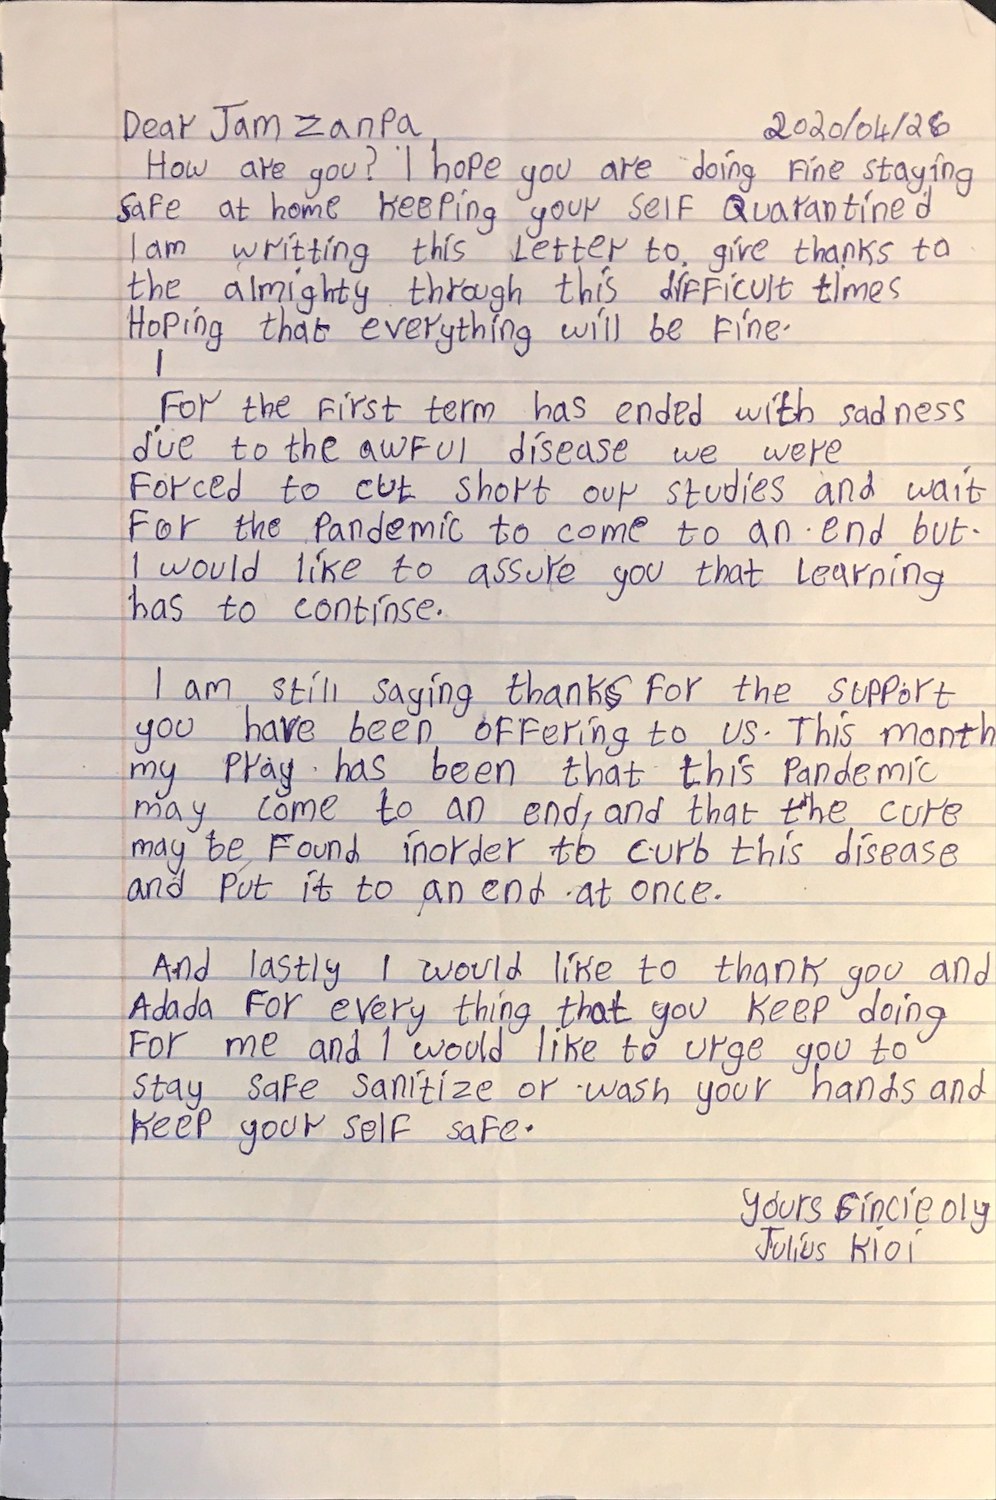 Dear Jam zanpa 2020/04/28
How are you? I hope you are doing fine staying
safe at home keeping your self Quarantined
I am writting this letter to give thanks to
the almighty through this difficult times
Hoping that everything will be fine.
I
For the first term has ended with sadness
due to the awful disease we were
Forced to cut short our studies and wait
For the pandemic to come to an end but
I would like to assure you that learning
has to continse.
I am still saying thanks for the support
you have been offering to us. This month
my pray has been that this pandemic
may come to an end, and that the cure
may be found inorder to curb this disease
and put it to an end at once.
And lastly I would like to thank you and
Adada for every thing that you keep doing
For me and I would like to urge you to
stay safe sanitize or wash your hands and
keep your self safe.
Yours sincieoly
Julius Kioi